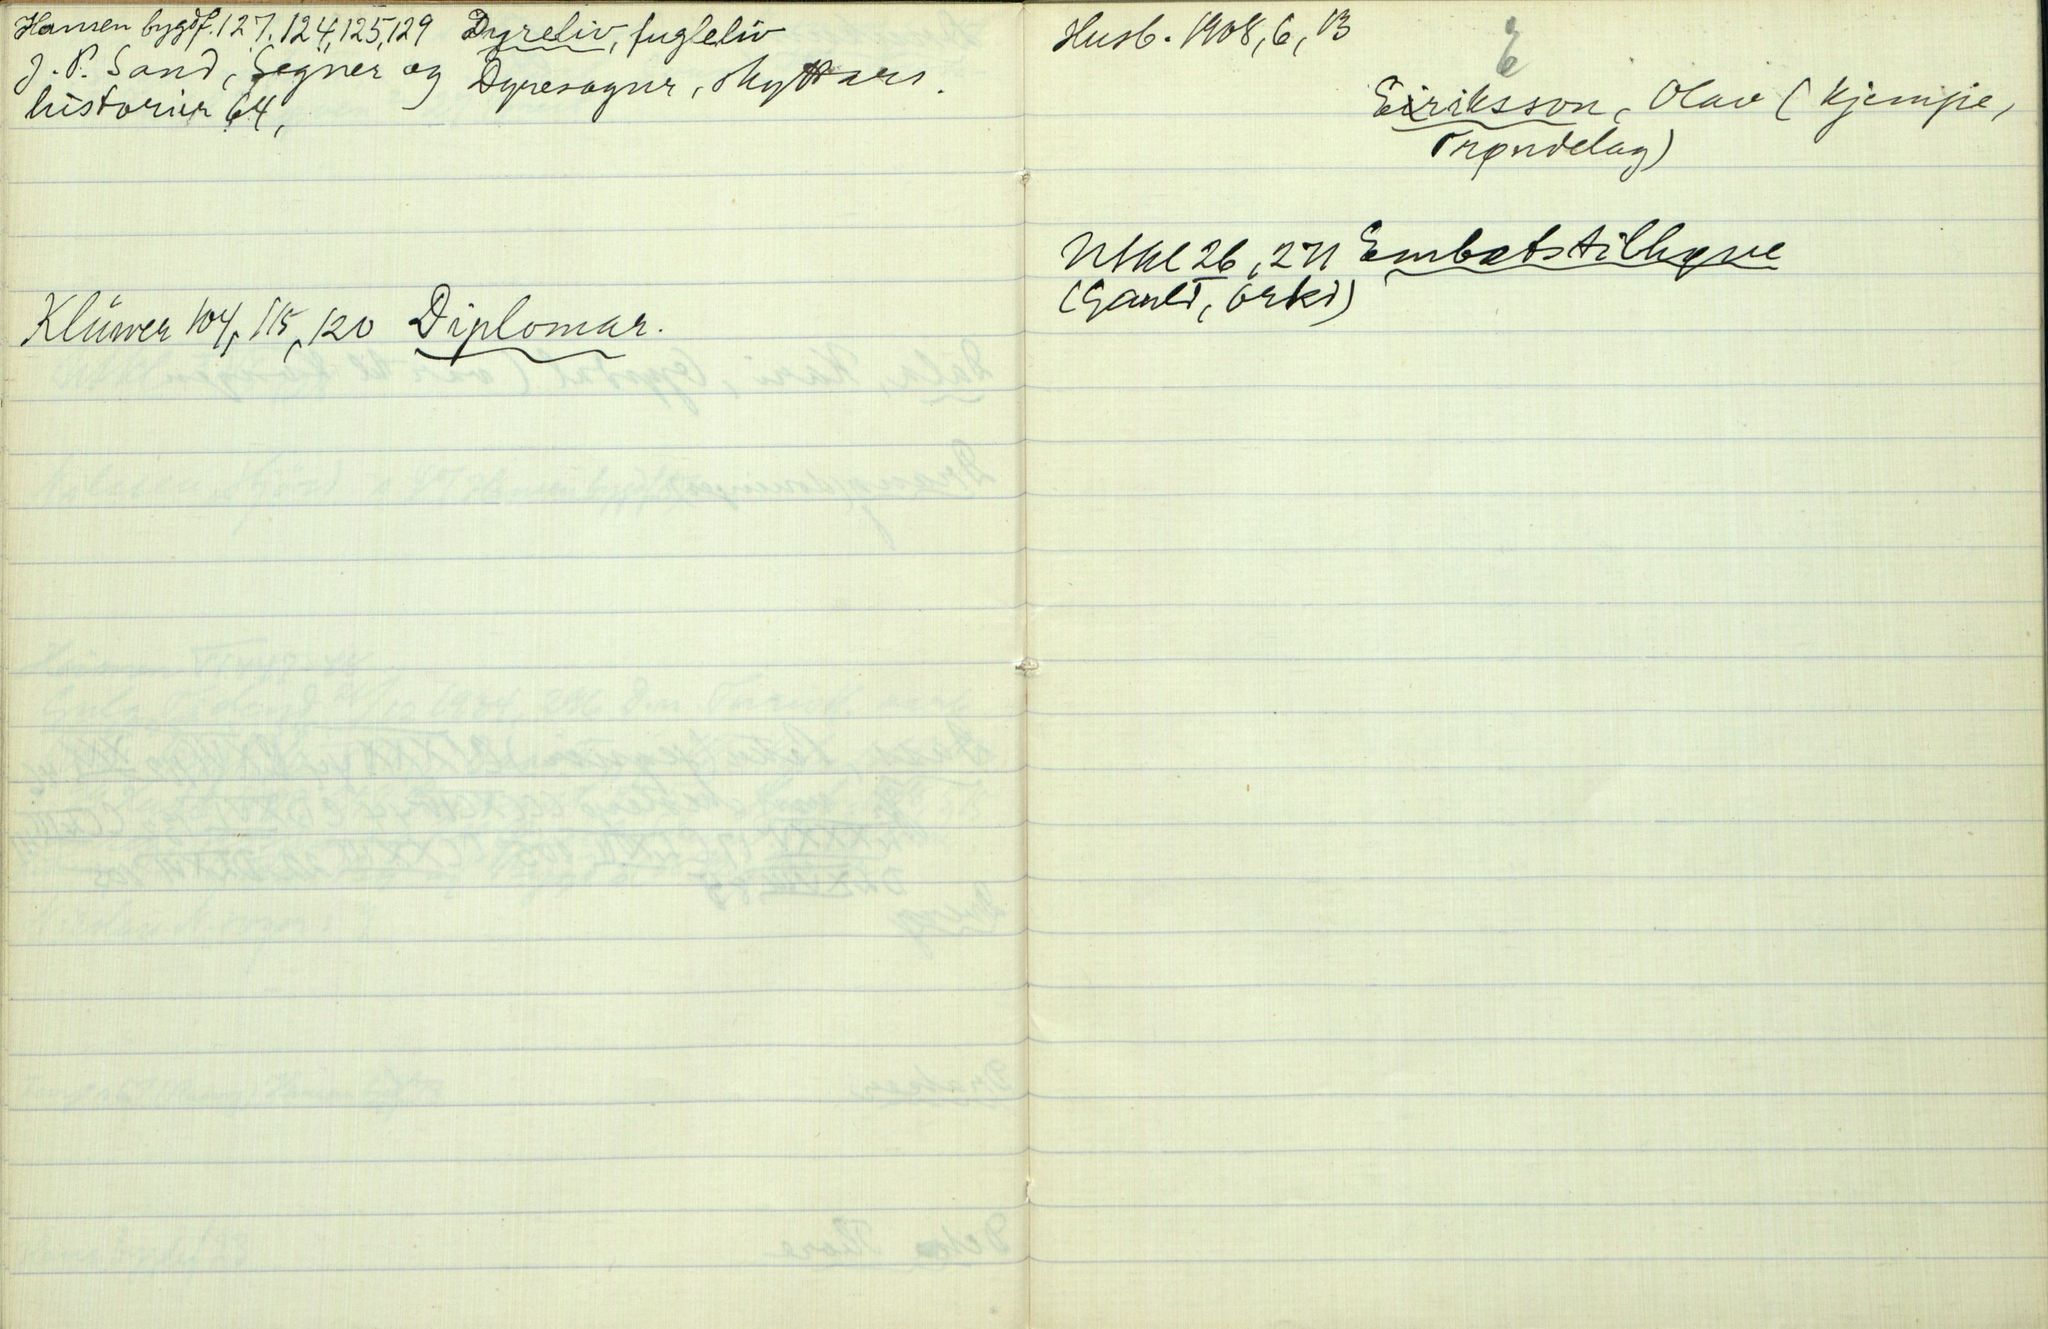 Hansen bygdf. 127, 124, 125, 129 Dyreliv, fugleliv
J. P. Sand, Segner og Dyresogur, skyttars.
historier 64,
Klüwer 104, 115, 120 Diplomar.
E
Husb. 1908, 6, 13
Eiriksson, Olav (kjempe,
Trøndelag)
26, 271 Embetstilhøve
(Gauld, Orkd)